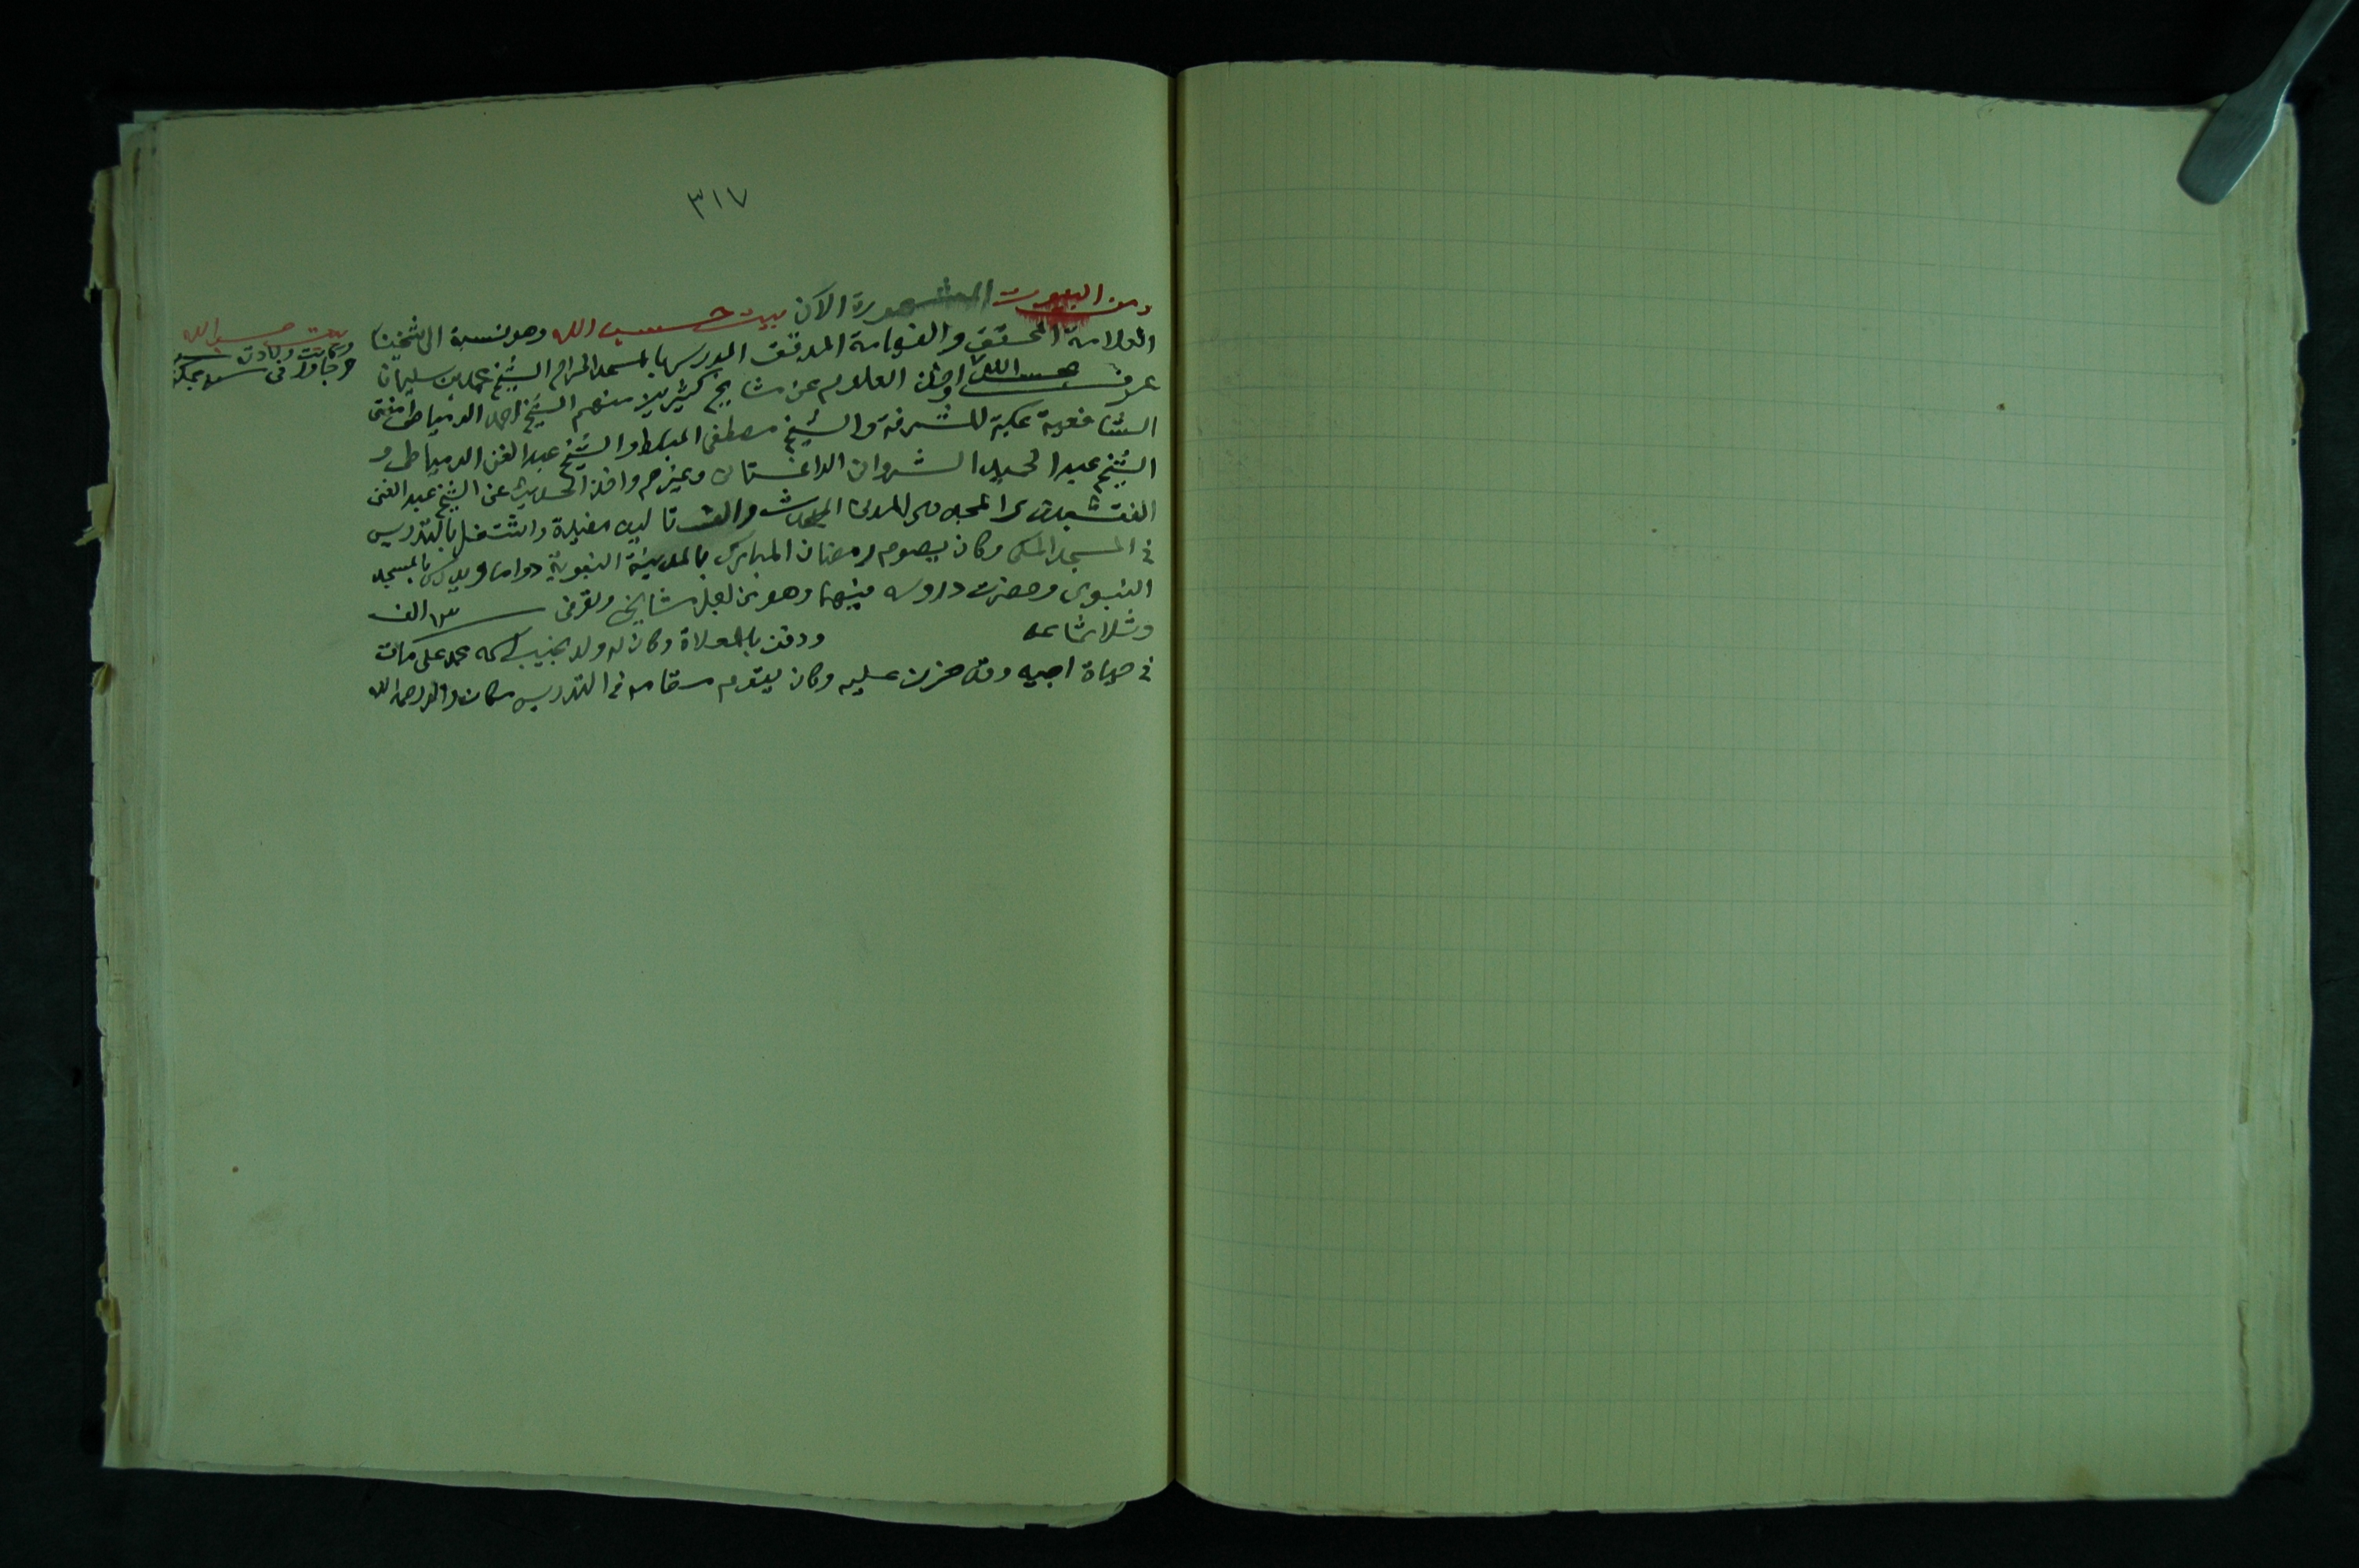 ٣١٧
ومن البيوت المشهورة الآن بيت حسب الله وهو نسبة الى شيخنا
العلامة المحقق والفهامة المدقق المدرس بالمسجد الحرام الشيخ محمد بن سليمان
عرف حسب الله واخذ العلوم عن مشايخ كثيرين منهم الشيخ احمد الدمياطى مفتى
الشافعية بمكة المشرفة والشيخ مصطفى المبلط والشيخ عبد الغنى الدمياطى و
الشيخ عبد الحميد الشروانى الداغستانى وغيرهم واخذ الحديث عن الشيخ عبد الغنى
النقشبندى المجددى المدنى المحدث والف تاليف مفيدة واشتغل بالتدريس
فى المسجد المكى وكان يصوم رمضان المبارك بالمدينة النبوية دواما ويدرس بالمسجد
النبوى وحضرت دروسه فيهما وهو من اجل مشايخى وتوفى سنة الف
وثلاثمائة ودفن بالمعلاة وكان له ولد نجيب اسمه محمد على مات
فى حياة ابيه وقد حزن عليه وكان يقوم مقامه فى التدريس مكان والده رحمه الله
بيت حسب الله
وكانت ولادته